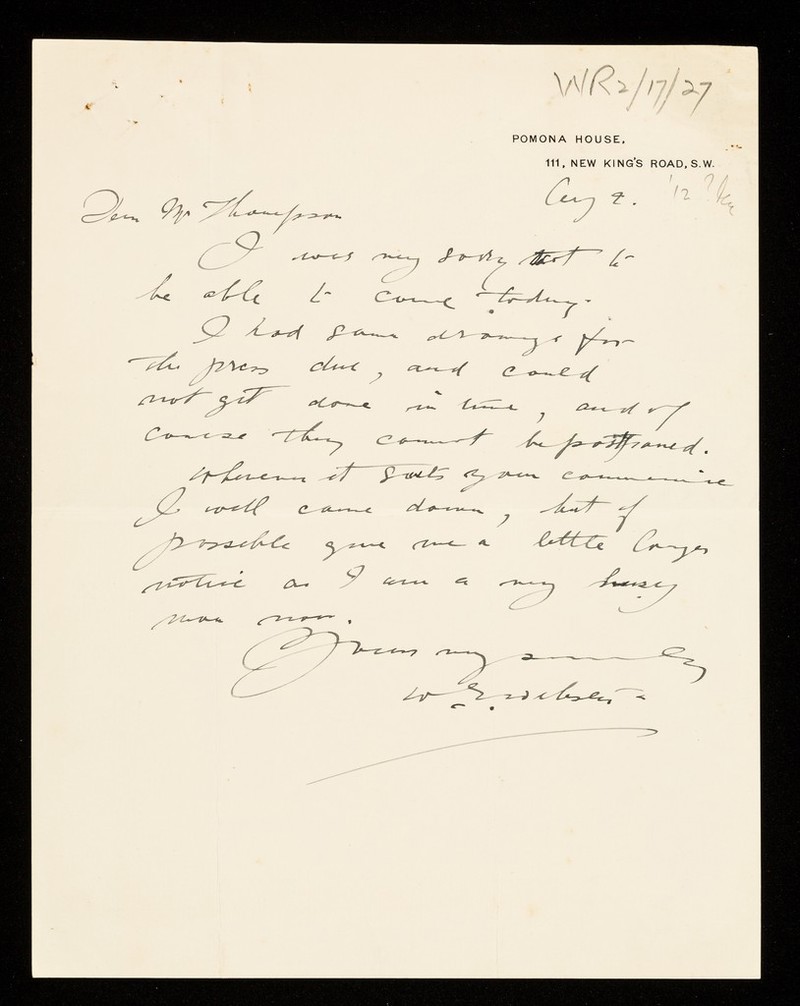 WR2/17/27
POMONA HOUSE,
111, NEW KING'S ROAD, S.W.
Aug 2. '12 ?
Dear Mr Thompson
I was very sorry not to
be able to come today.
I had some drawings for
the press due, and could
not get done in time, and of
course they cannot be postponed.
Whenever it suits your convenience
I will come down, but if
possible give me a little longer
notice as I am a very busy
man now.
Yours very sincerely
W. E. Webster